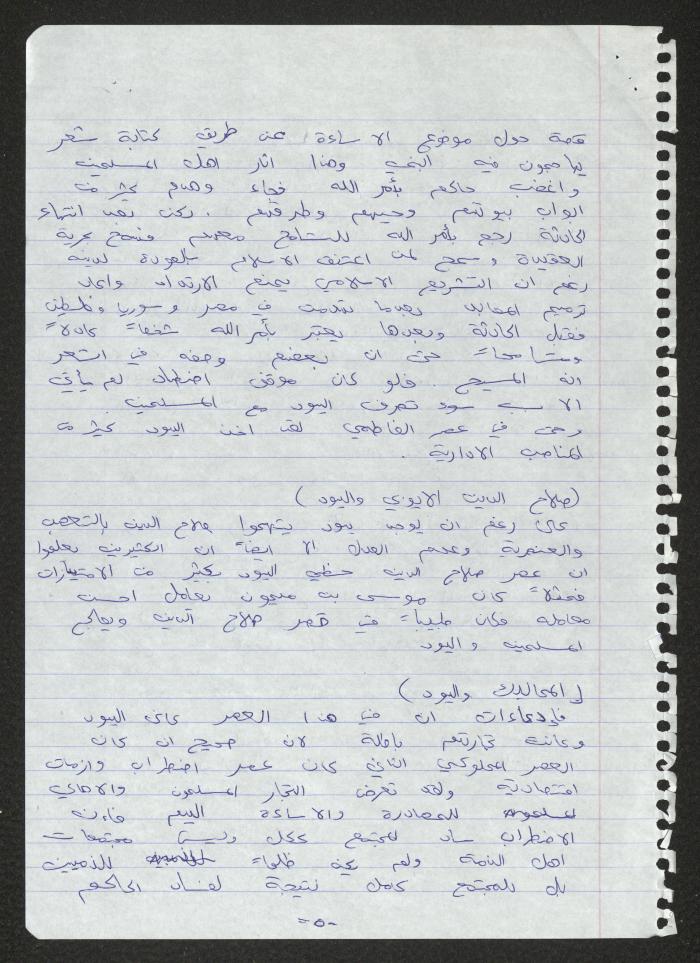 قصة حول موضوع الاساءة عن طريق كتابة شعر
يهاجمون فيه النبي وهذا اثار اهل المسلمين
واغضب حاكم بأمر الله فجاء وهدم كثير من
ابواب بيوتهم وحيهم وطرقهم . لكن بعد انتهاء
الحادثة رجع بأمر الله للتسامح معهم ومنح بحرية
العقيدة وسمح لمن اعتنق الاسلام بالعودة لدينه
رغم ان التشريع الاسلامي يمنع الارتداد واعاد
ترميم المعابد بعدما تهدمت في مصر وسوريا وفلسطين
فقبل الحادثة وبعدها يعتبر بأمر الله شخصاً عادلاً
ومتسامحاً حتى ان بعضهم وصفه في الشعر
انه المسيح . فلو كان موقف اضطهاد لم يأتي
الا بسبب سوء تصرف اليهود مع المسلمين .
وحتى في عصر الفاطمي لقد اخذ اليهود كثير من
المناصب الادارية .
(صلاح الدين الايوبي واليهود)
على رغم ان يوجد يهود يتهموا صلاح الدين بالتعصب
والعنصرية وعدم العدل الا ايضاً ان الكثيرين يعلموا
ان عصر صلاح الدين حظي اليهود بكثير من الامتيازات
فمثلاً كان موسى بن ميمون يعامل احسن
معامله فكان طبيباً في قصر صلاح الدين ويعالج
المسلمين واليهود
(المماليك واليهود)
فإدعاءات ان في هذا العصر عانى اليهود
وعانت تجارتهم باطلة لان صحيح ان كان
العصر المملوكي الثاني كان عصر اضطراب وازمات
اقتصادية ولقد تعرض التجار المسلمون والاهالي
للمصادرة والاساءة اليهم فأن
الاضطراب ساد المجتمع ككل وليس مجتمعات
اهل الذمة ولم يكن ظلماً للذميين
بل للمجتمع كامل نتيجة لفساد الحاكم
-٥٠=